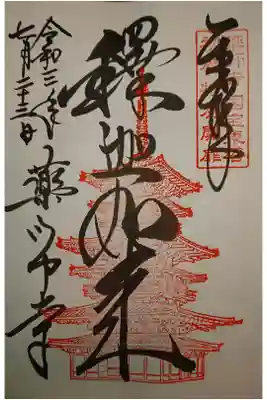 奉拝
釋迦如来
令和三年
七月二十三日
藥師寺